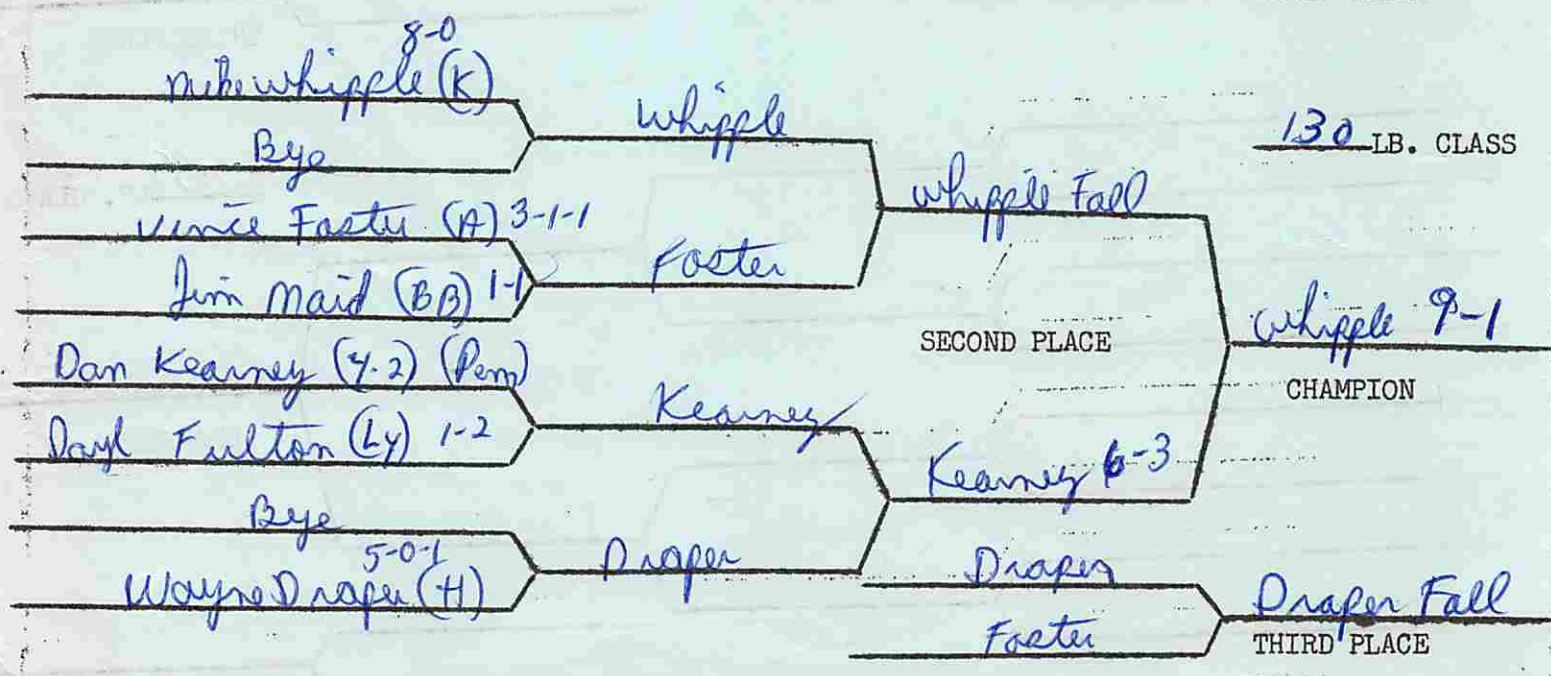 8-0
Mike Whipple (K)
Bye
Vince Foster (A) 3-1-1
Jim Maid (BB) 1-1
Dan Kearney (4-2) (Pem)
Dayl Fulton (Ly) 1-2
Bye
5-0-1
Wayne Draper (H)
Whipple
Foster
Kearney
Draper
Whipple Fall
SECOND PLACE
Kearney 6-3
Draper
Foster
130 LB. CLASS
Whipple 9-1
CHAMPION
Draper Fall
THIRD PLACE